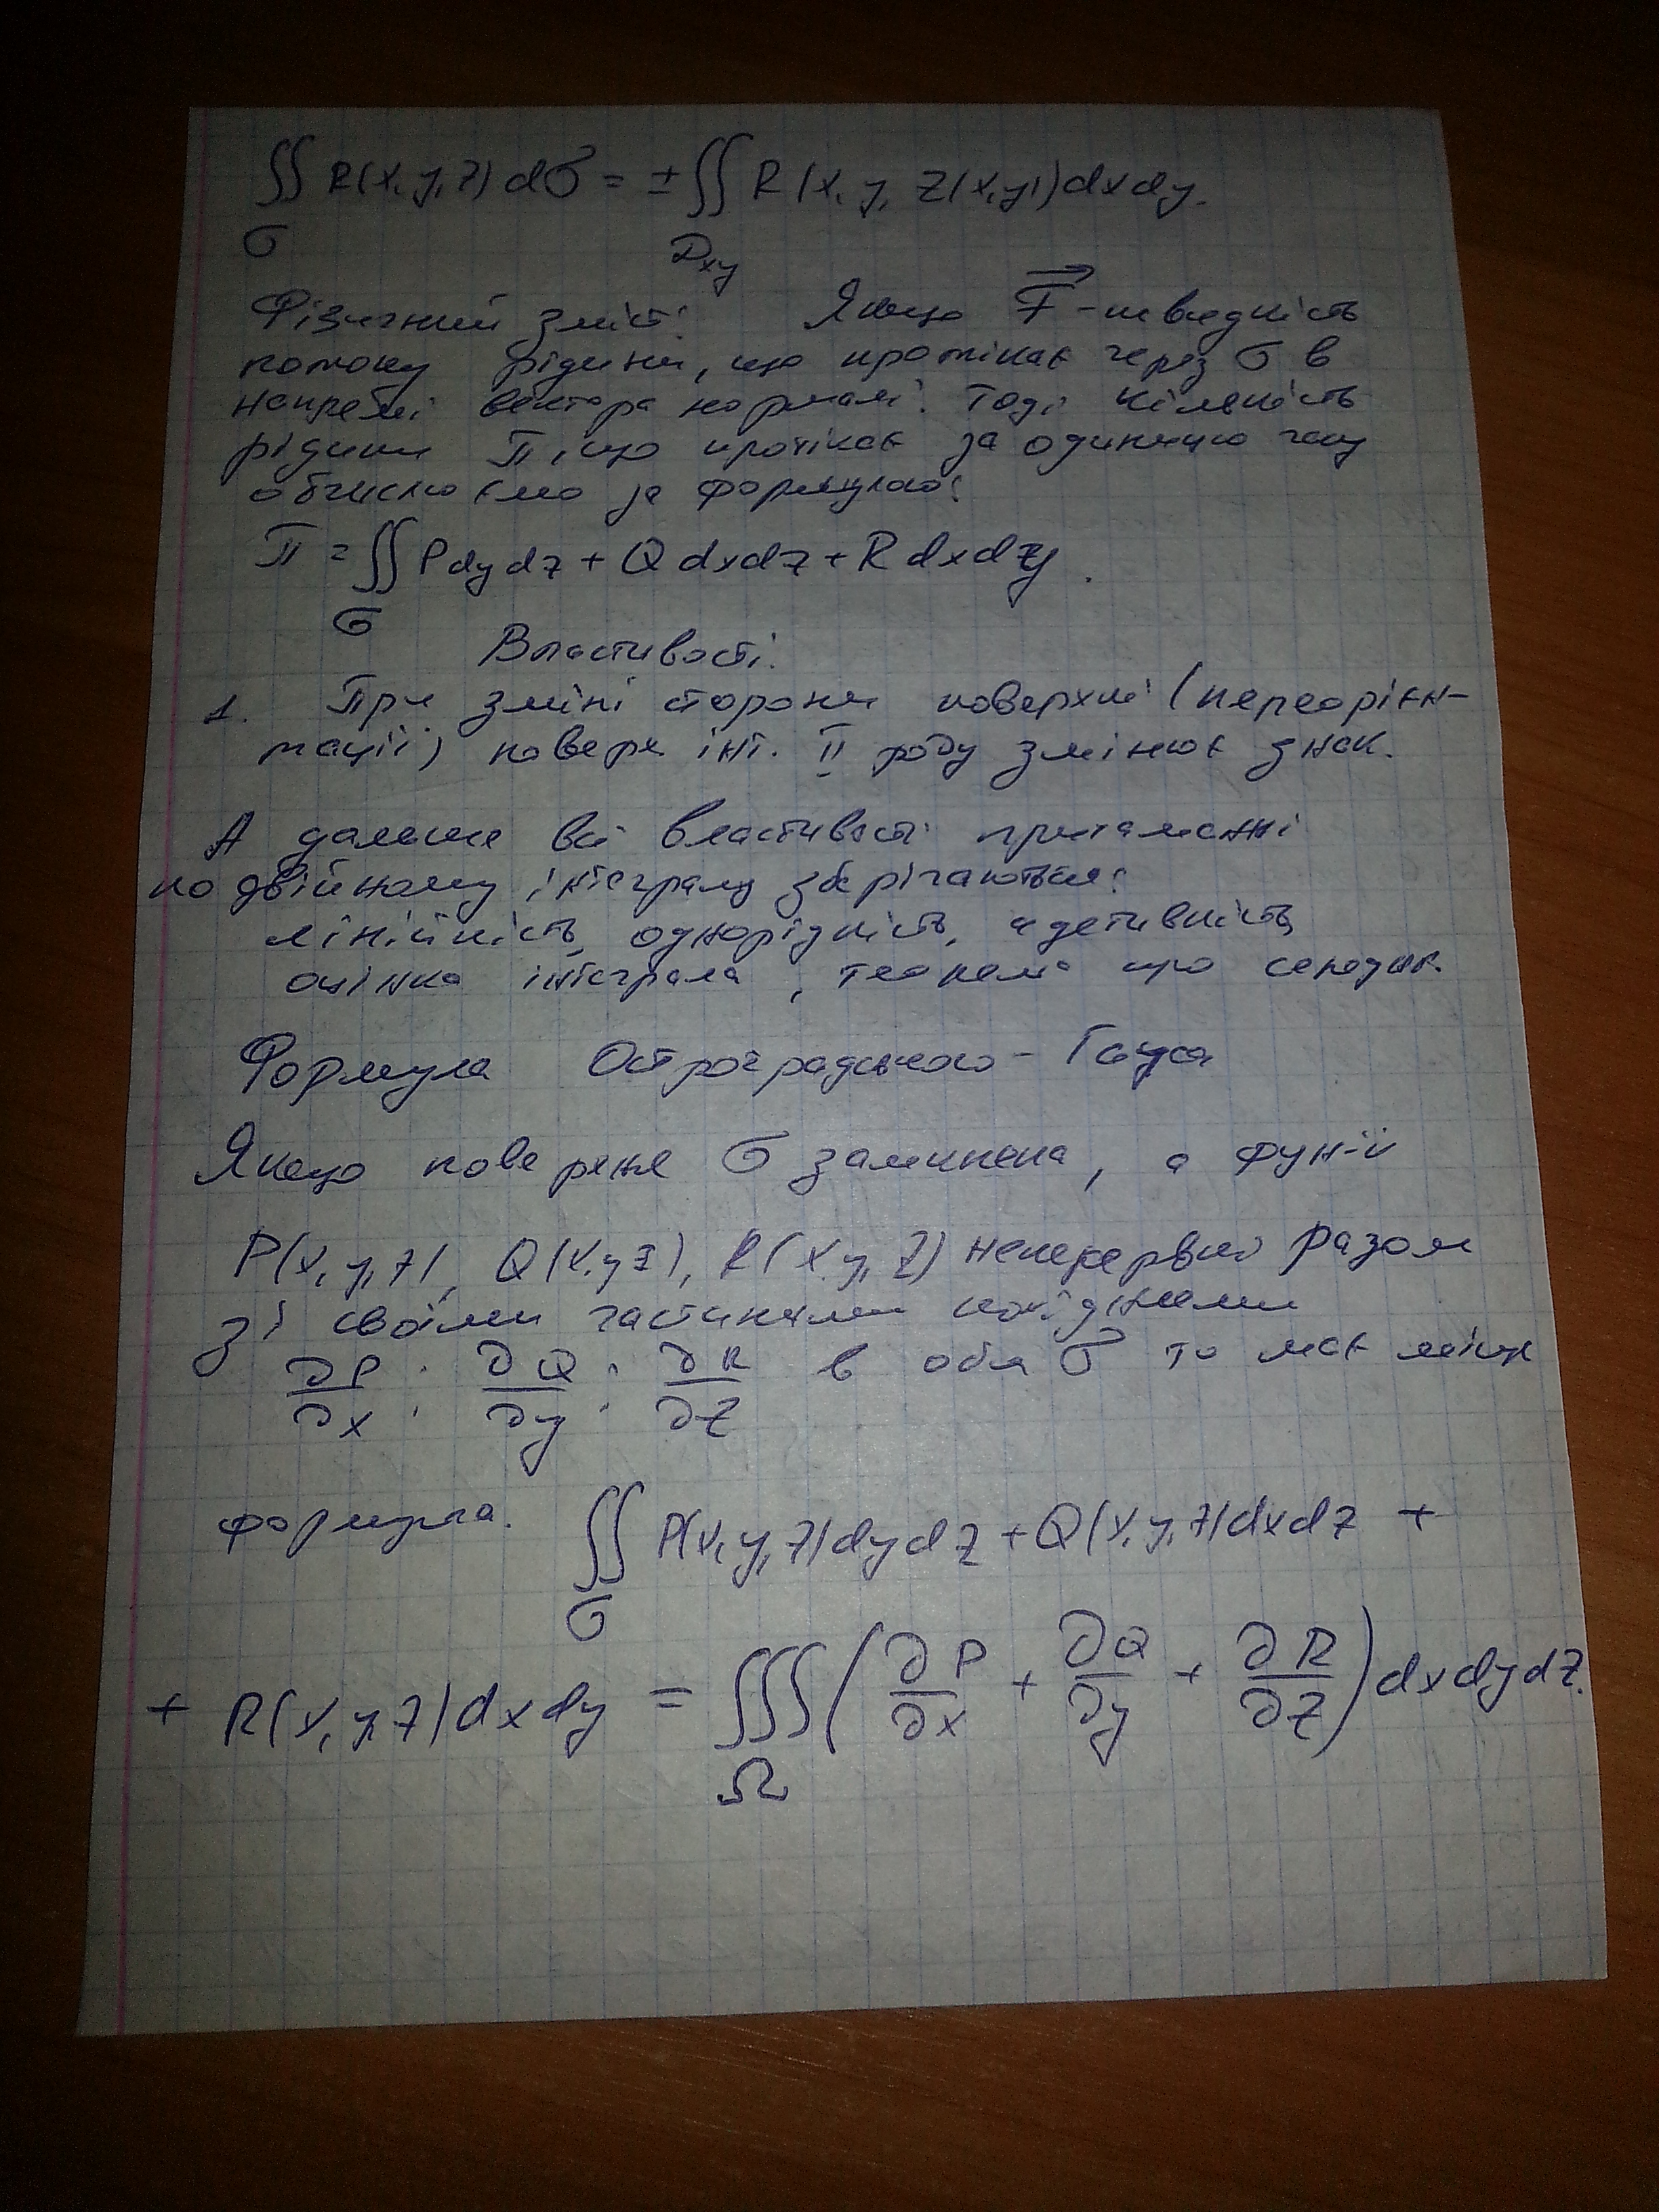 ∬ R(x, y, z) dσ = ± ∬ R(x, y, z(x,y)) dxdy.
σ Dxy
Фізичний зміст: Якщо F⃗ - швидкість
потоку рідини, що протікає через σ в
напрямі вектора нормалі. Тоді кількість
рідини П, що протікає за одиницю часу
обчислюємо за формулою:
П = ∬ Pdydz + Qdxdz + Rdxdy.
σ
Властивості:
1. При зміні сторони поверхні (переорієн-
тації) поверх інт. II роду змінює знак.
А дальше всі властивості притаманні
подвійному інтегралу зберігаються:
лінійність, однорідність, адетивність,
оцінка інтеграла, теорема про середнє.
Формула Остроградського - Гауса
Якщо поверхне σ замкнена, а фун-ії
P(x, y, z), Q(x, y, z), R(x, y, z) неперервні разом
зі своїми частинними похідними
∂P/∂x, ∂Q/∂y, ∂R/∂z в обл σ то має місце
формула. ∬ P(x, y, z)dydz + Q(x, y, z)dxdz +
σ
+ R(x, y, z)dxdy = ∭ (∂P/∂x + ∂Q/∂y + ∂R/∂z) dxdydz.
Ω